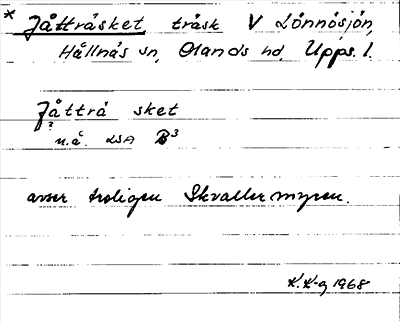 * Jåtträsket träsk V Lönnösjön,
Hållnäs sn, Olands hd, Upps. l.
Jåtträ sket
?
n.ä. LSA B³
avser troligen Skvallermyren.
K.K-g 1968